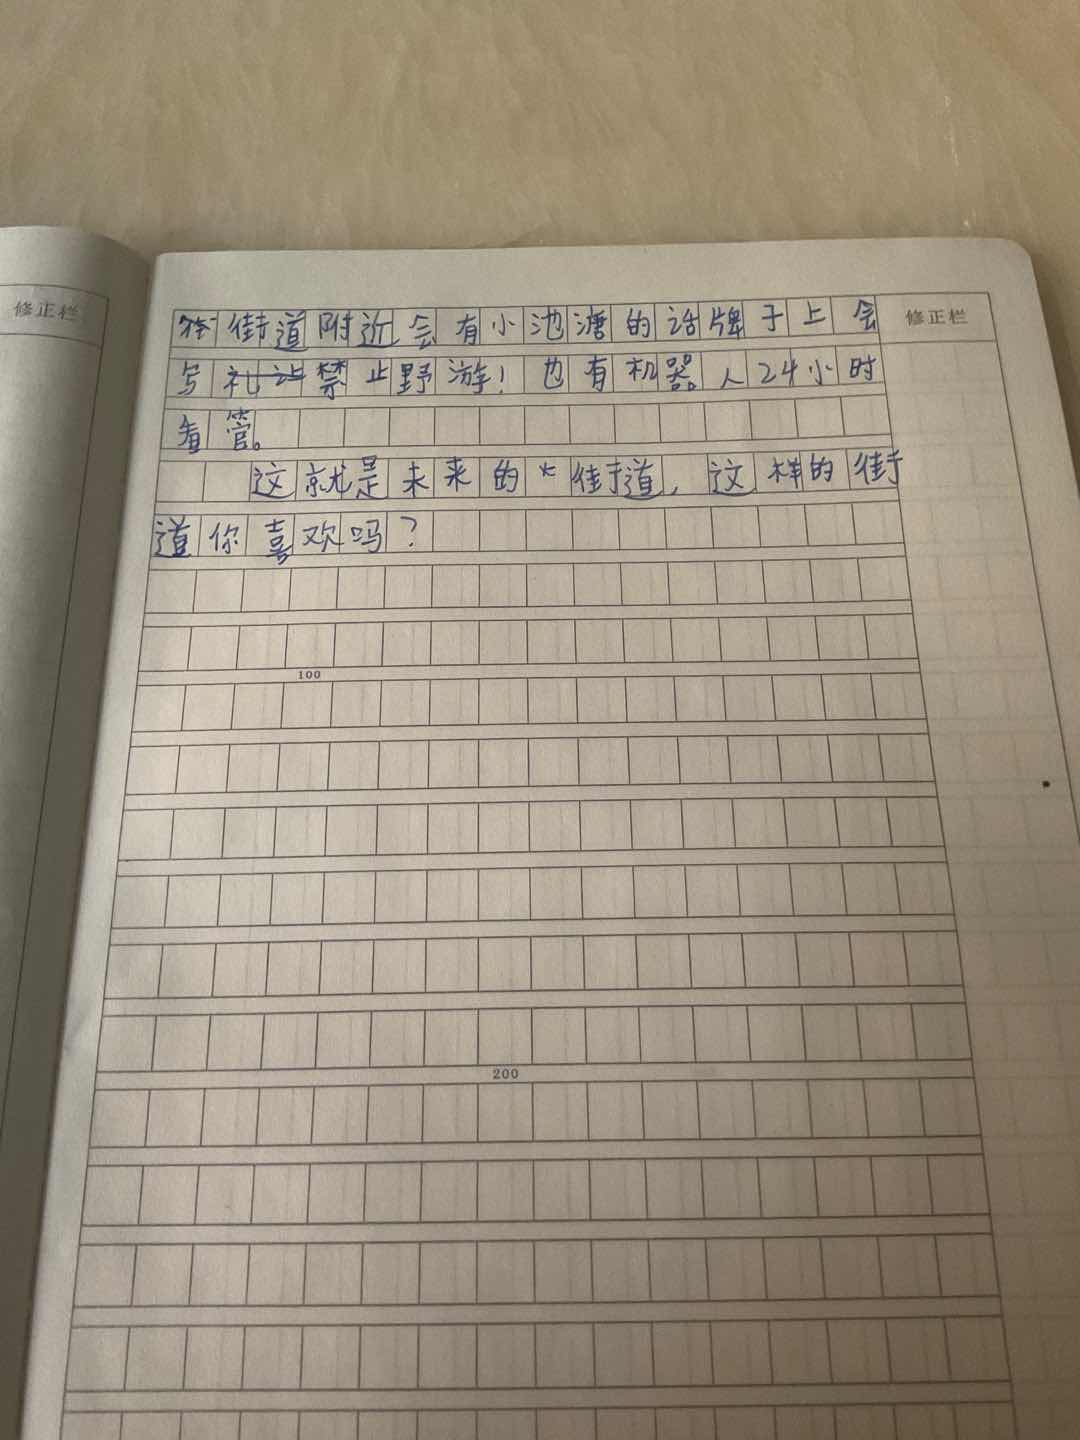 修正栏
街道附近会有小池溏的话牌子上会
修正栏
写禁止野游！也有机器人24小时
看管。
这就是未来的街道，这样的街
道你喜欢吗？
100
200